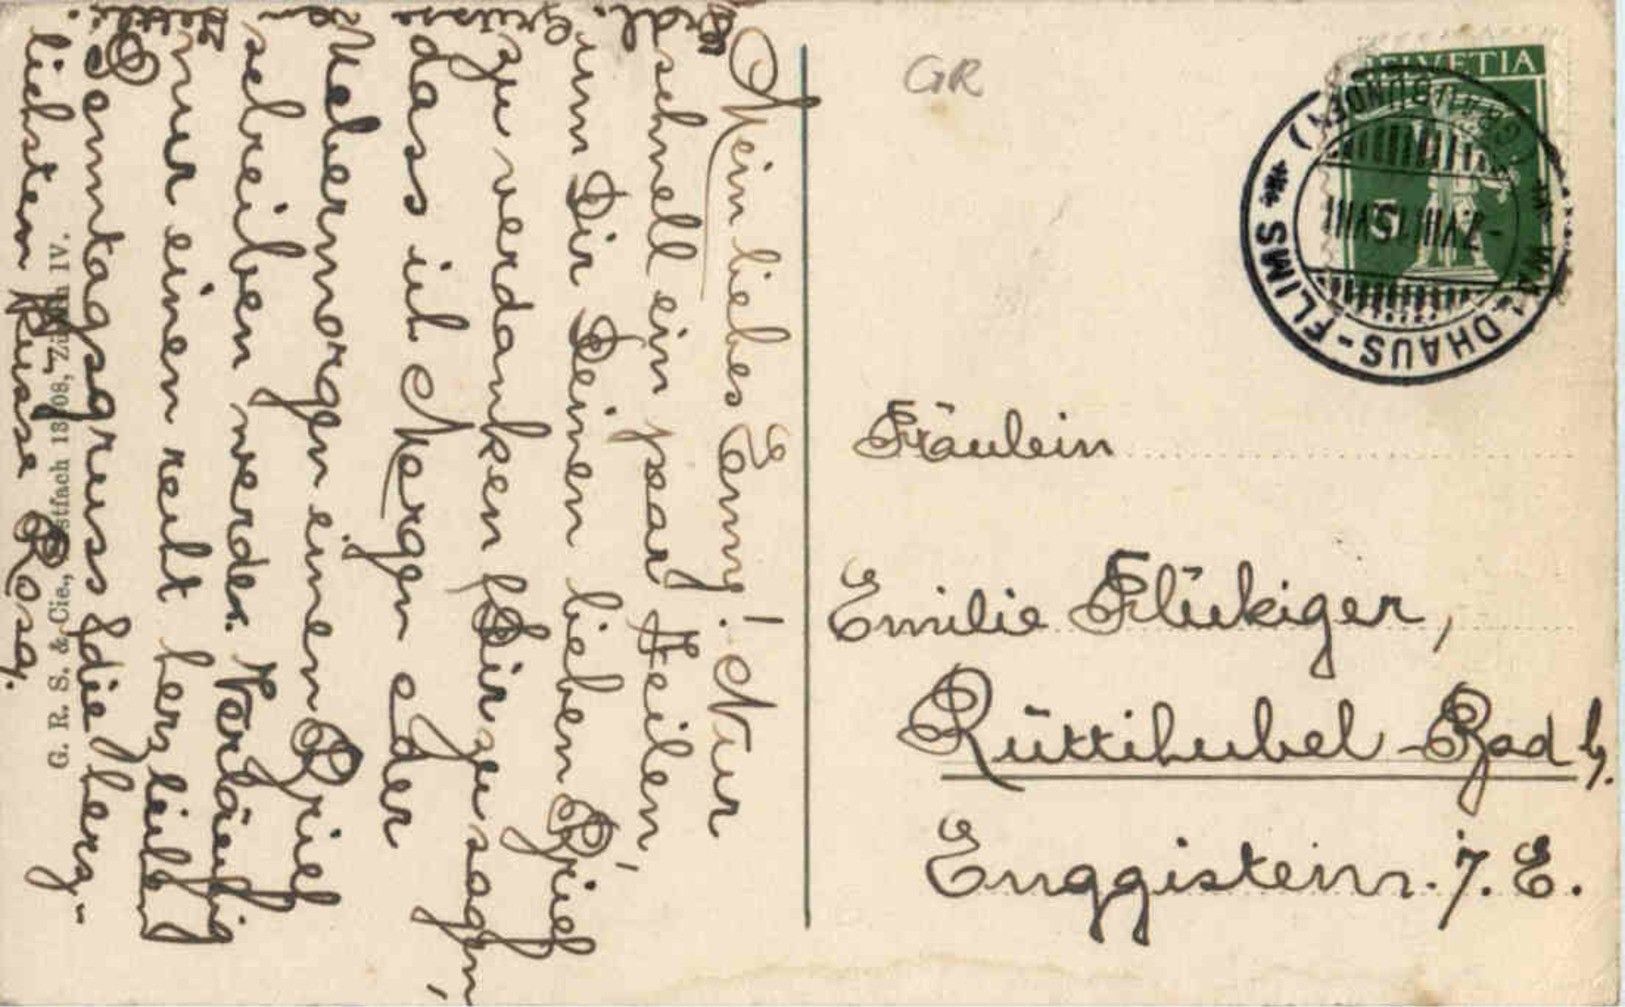 Mein liebes Emmy! Nur
schnell ein paar Zeilen,
um Dir Deinen lieben Brief
zu verdanken & Dir zu sagen,
dass ich Morgen oder
Uebermorgen einen Brief
schreiben werde. Vorläufig
nur einen recht herzlichen
Sonntagsgruss & die herz-
lichsten Küsse Rosa.
Grüsse
G. R. S. & Cie., Postfach 13108, Zürich IV.
GR
HELVETIA
5
WALDHAUS-FLIMS
(GRAUBÜNDEN)
-7.VIII.15.VIII
Fräulein
Emilie Flükiger,
Rüttihubel-Bad b.
Enggistein. i. E.